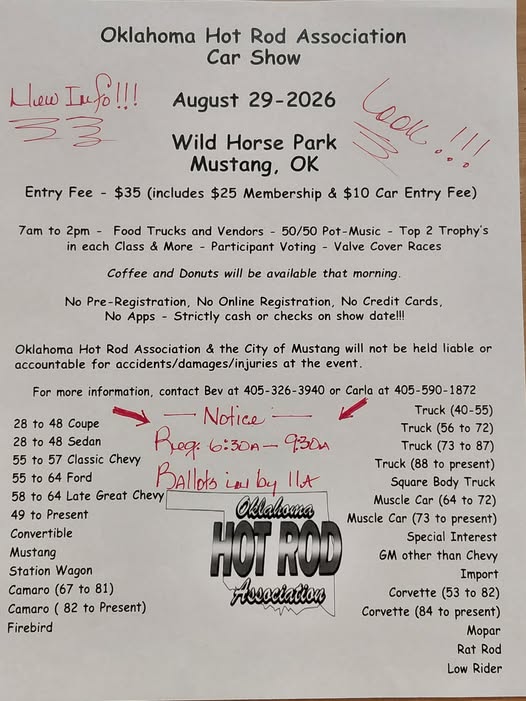 Oklahoma Hot Rod Association
Car Show
New Info!!!
August 29-2026
Look!!!
Wild Horse Park
Mustang, OK
Entry Fee - $35 (includes $25 Membership & $10 Car Entry Fee)
7am to 2pm - Food Trucks and Vendors - 50/50 Pot-Music - Top 2 Trophy's
in each Class & More - Participant Voting - Valve Cover Races
Coffee and Donuts will be available that morning.
No Pre-Registration, No Online Registration, No Credit Cards,
No Apps - Strictly cash or checks on show date!!!
Oklahoma Hot Rod Association & the City of Mustang will not be held liable or
accountable for accidents/damages/injuries at the event.
For more information, contact Bev at 405-326-3940 or Carla at 405-590-1872
— Notice —
Reg: 6:30A — 9:30A
Ballots in by 11A
28 to 48 Coupe
28 to 48 Sedan
55 to 57 Classic Chevy
55 to 64 Ford
58 to 64 Late Great Chevy
49 to Present
Convertible
Mustang
Station Wagon
Camaro (67 to 81)
Camaro ( 82 to Present)
Firebird
Oklahoma
HOT ROD
Association
Truck (40-55)
Truck (56 to 72)
Truck (73 to 87)
Truck (88 to present)
Square Body Truck
Muscle Car (64 to 72)
Muscle Car (73 to present)
Special Interest
GM other than Chevy
Import
Corvette (53 to 82)
Corvette (84 to present)
Mopar
Rat Rod
Low Rider